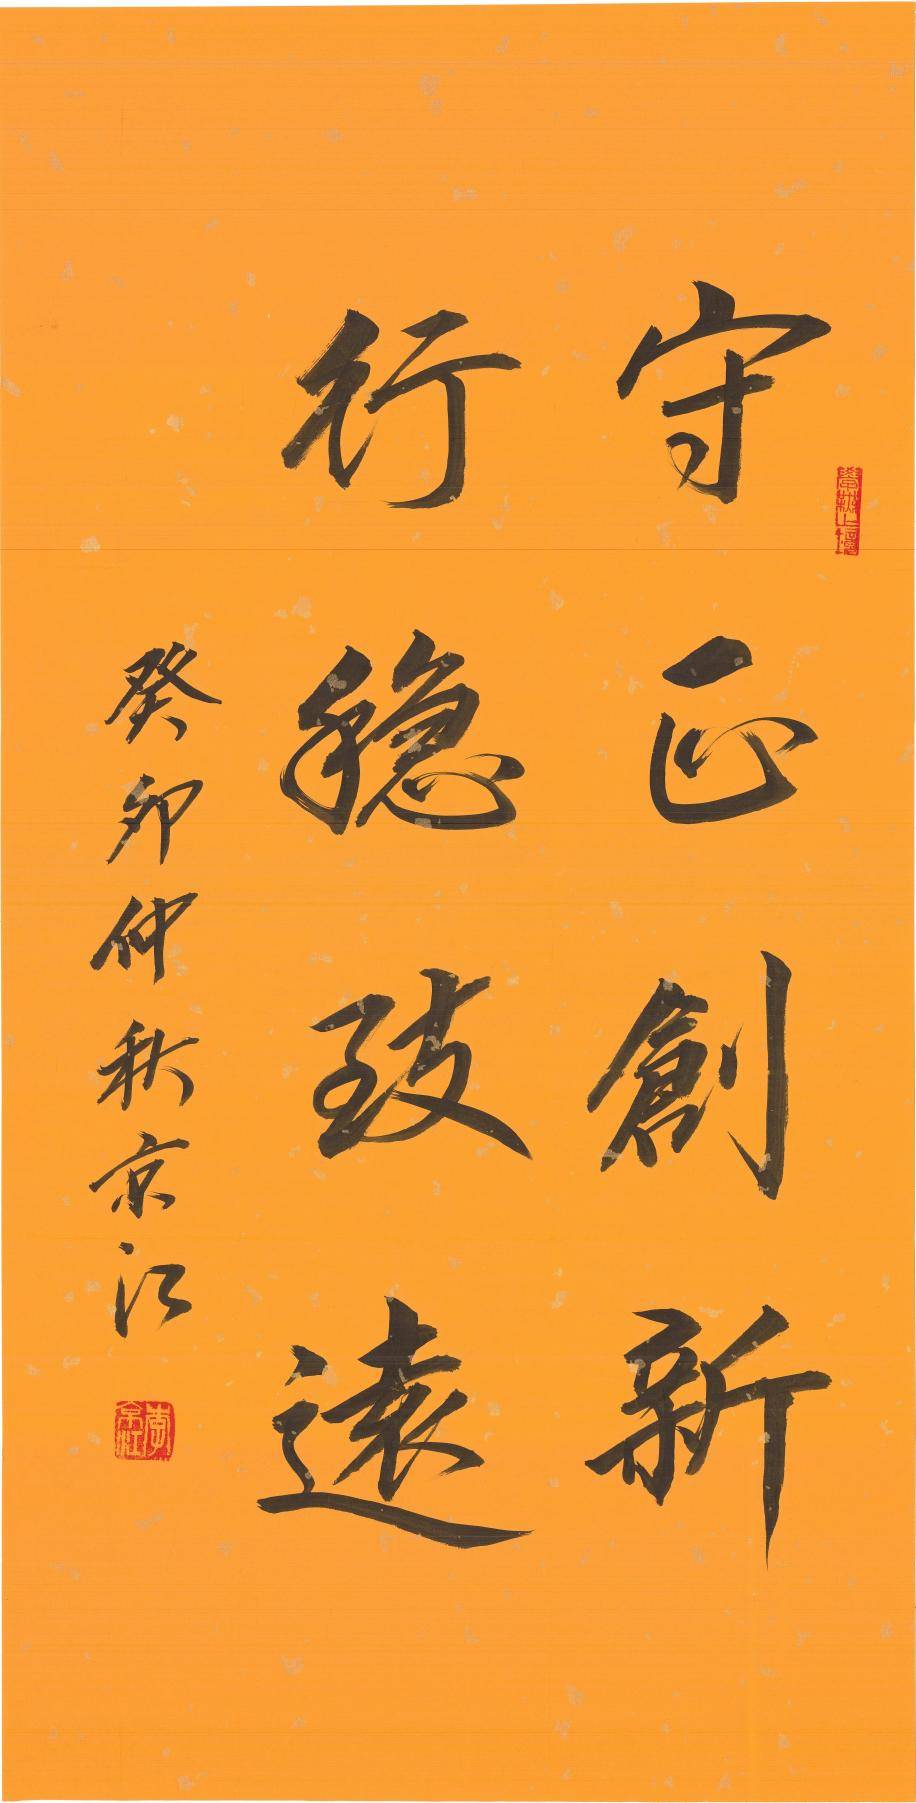 守正創新
行穩致遠
癸卯仲秋京江
李京江